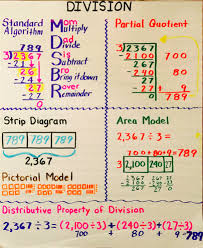 DIVISION
Standard
Algorithm
789
3)2367
-21
26
-24
27
-27
0
Mom
Multiply
Dad
Divide
Sis
Subtract
Bro
Bring it down
Rover
Remainder
Partial Quotient
3)2367
-2100
267
-240
27
-27
0
700
80
+ 9
789
Strip Diagram
789 789 789
2,367
Pictorial Model
Area Model
2,367 ÷ 3 =
700+80+9=789
3 2,100 240 27
Distributive Property of Division
2,367 ÷ 3 = (2,100÷3) + (240÷3) + (27÷3)
700 + 80 + 9 = 789